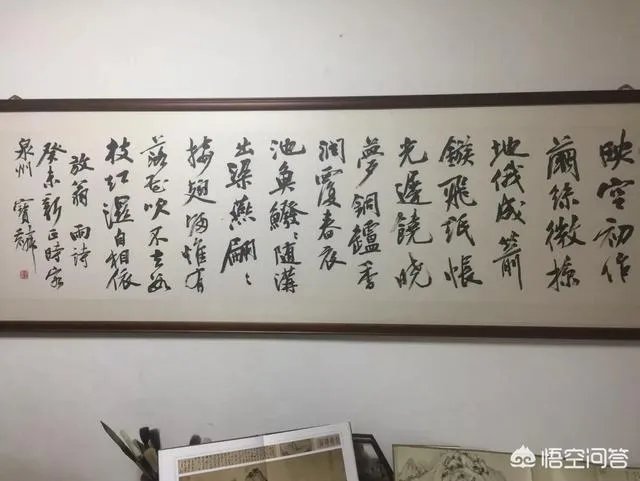 映空初作
繭絲微掠
地俄成箭
鏃飛紙帳
光遲饒曉
夢銅鑪香
潤覆春衣
池魚鱍〻随溝
出梁燕翩〻
接翅歸惟有
落花吹不去数
枝紅濕自相依
放翁雨詩
癸未新正時客
泉州 寶
悟空问答